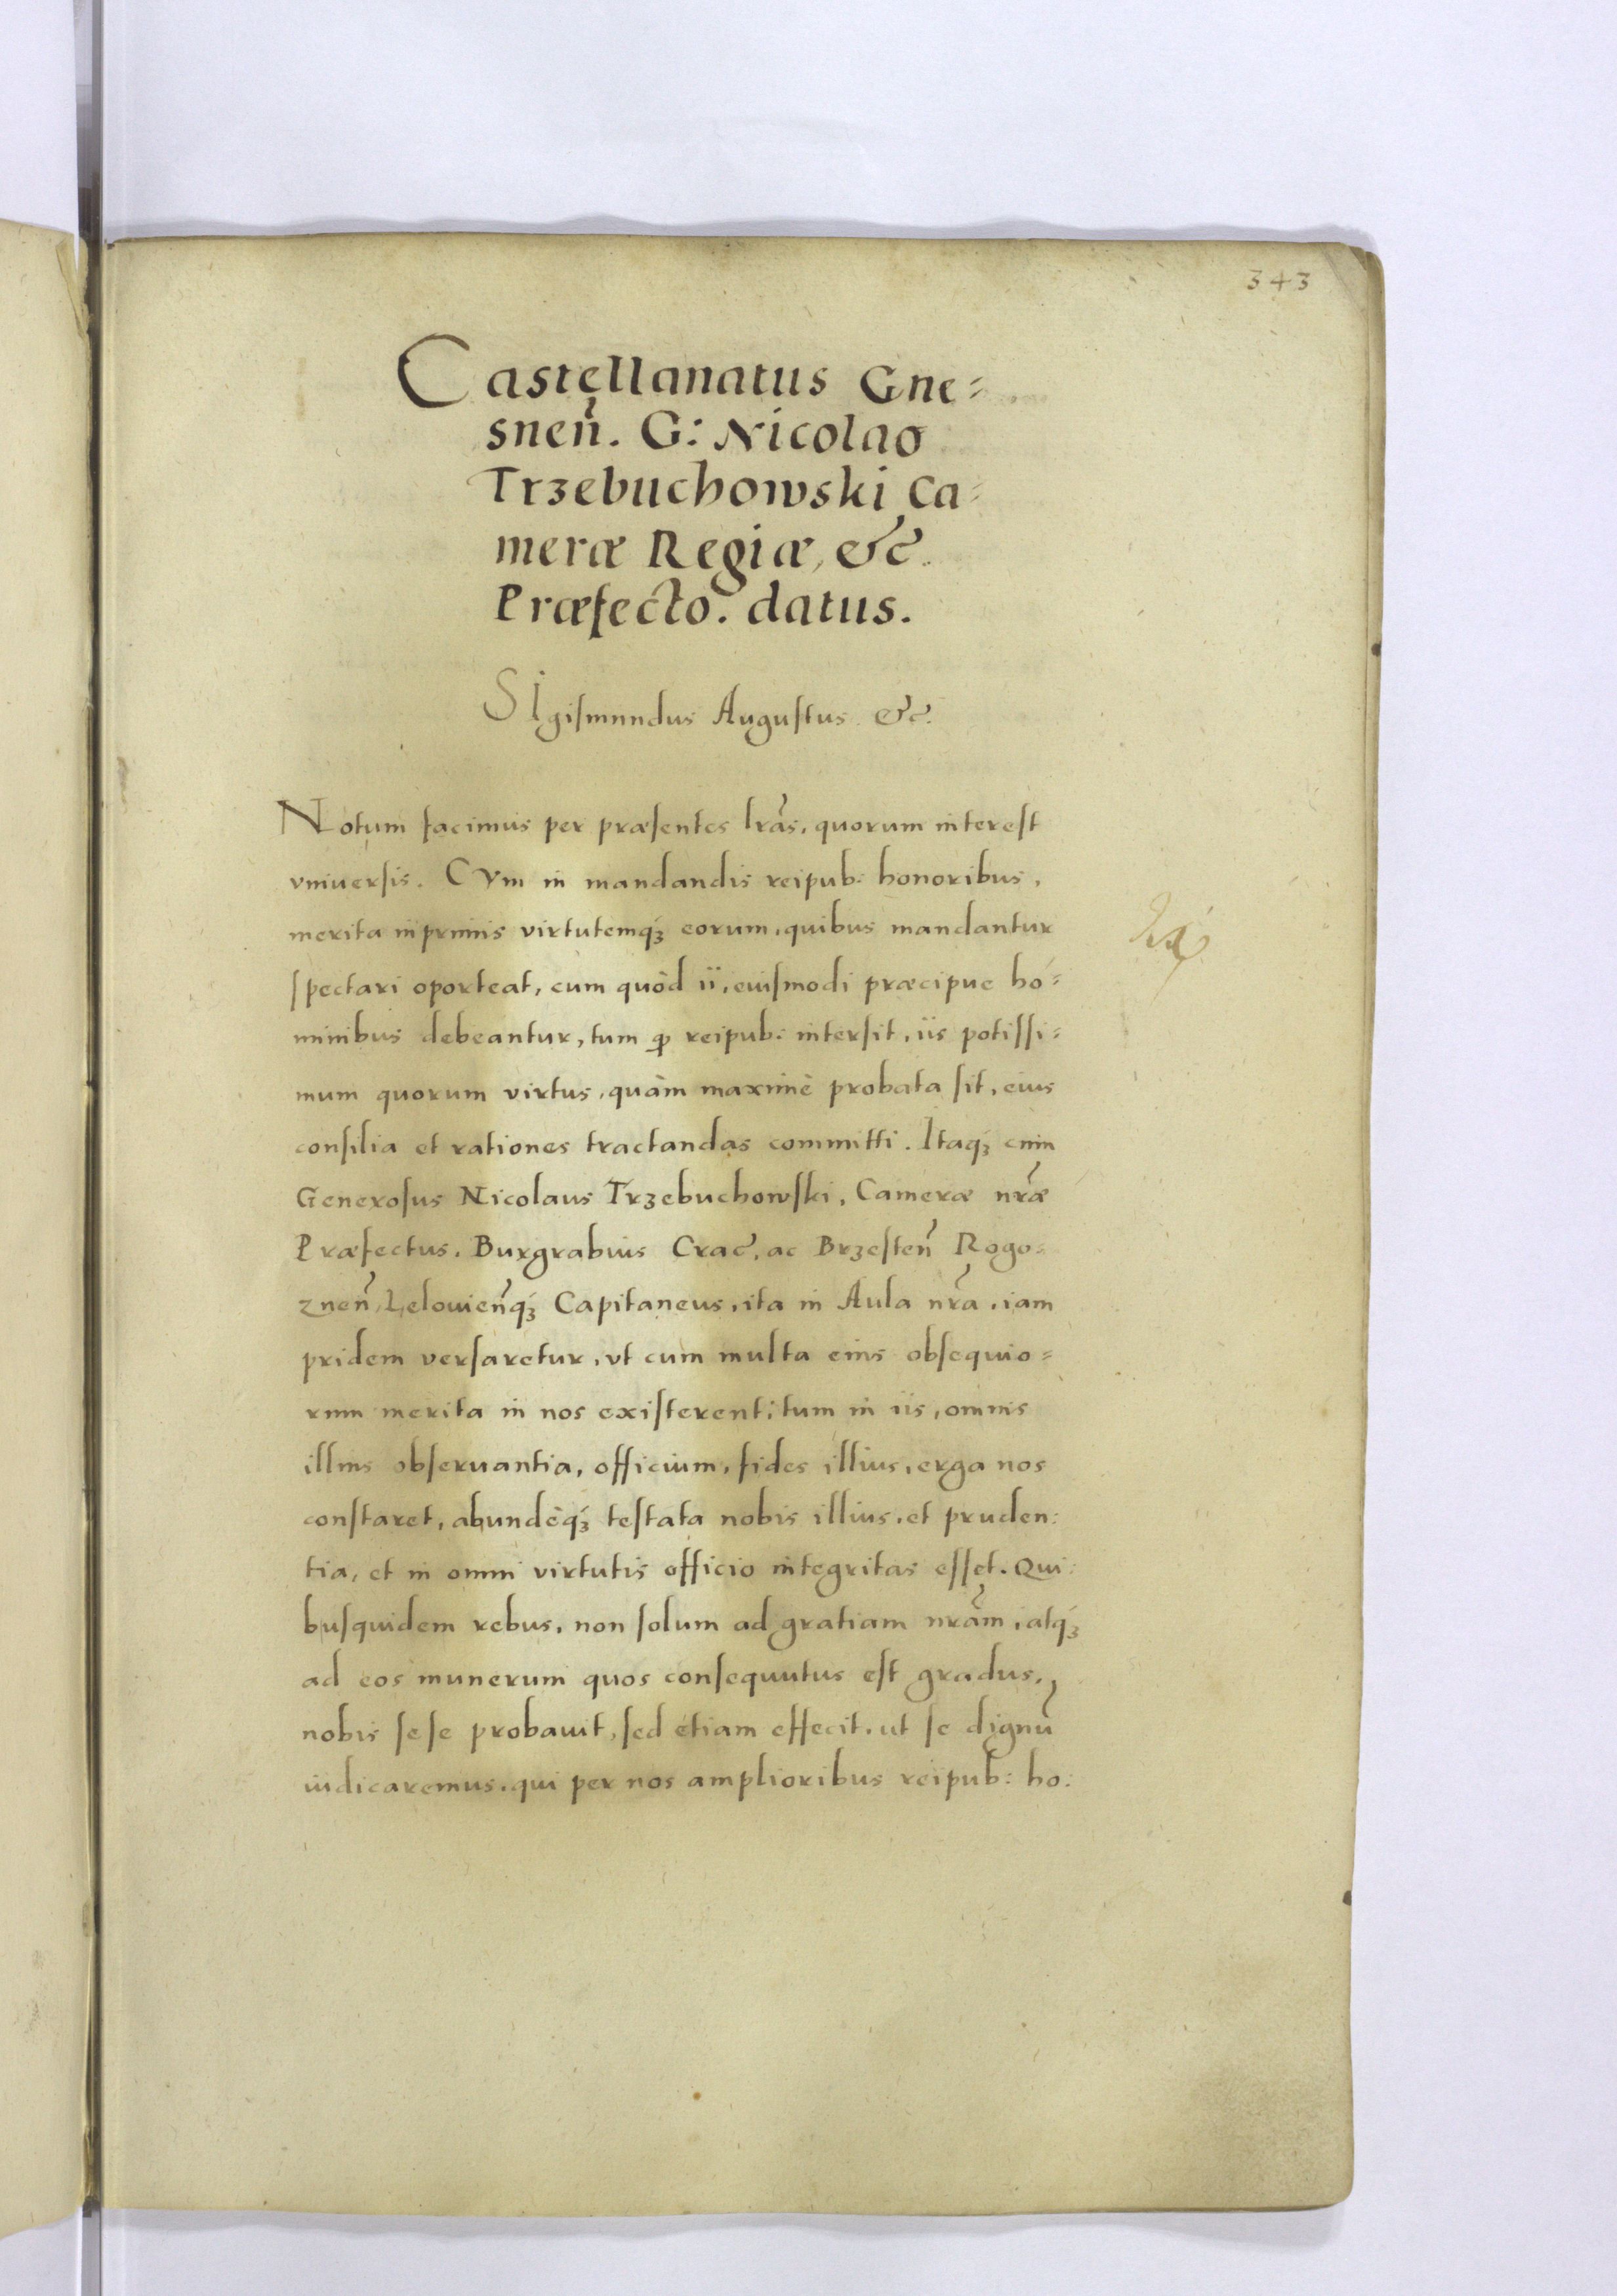 343
Castellanatus Gne=
snen̄. G: Nicolao
Trzebuchowski Ca=
meræ Regiæ, &c.
Præfecto. datus.
SIgismundus Augustus &c.
Notum facimus per præsentes lrãs, quorum interest
vniuersis. CVm in mandandis reipub: honoribus,
merita inprimis virtutemq́ꝫ eorum, quibus mandantur
spectari oporteat, cum quòd ii, eiusmodi præcipue ho=
minibus debeantur, tum ꝙ reipub: intersit, iis potissi=
mum quorum virtus, quàm maximè probata sit, eius
consilia et rationes tractandas committi. Itaq́ꝫ cum
Generosus Nicolaus Trzebuchowski, Cameræ nr̃æ
Præfectus, Burgrabius Crac̃, ac Brzesten̄ Rogo=
znen̄, Lelouien̄q́ꝫ Capitaneus, ita in Aula nr̃a, iam
pridem versaretur, vt cum multa eius obsequio=
rum merita in nos existerent: tum in iis, omnis
illius obseruantia, officium, fides illius, erga nos
constaret, abundèq́ꝫ testata nobis illius, et pruden:
tia, et in omni virtutis officio integritas esset. Qui:
busquidem rebus, non solum ad gratiam nrãm, atq́ꝫ
ad eos munerum quos consequutus est gradus,
nobis sese probauit, sed etiam effecit, ut se dignū
iudicaremus, qui per nos amplioribus reipub: ho: